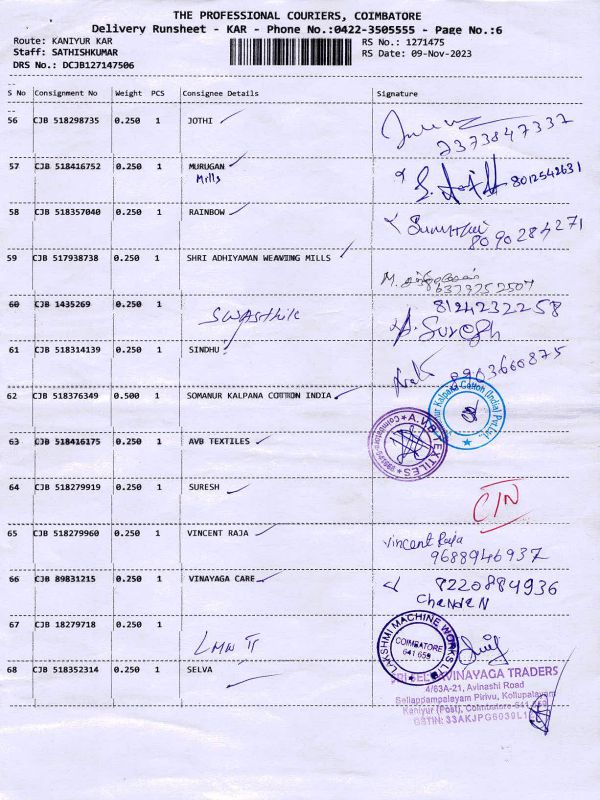 THE PROFESSIONAL COURIERS, COIMBATORE
Delivery Runsheet - KAR - Phone No.:0422-3505555 - Page No.:6
Route: KANIYUR KAR
RS No.: 1271475
Staff: SATHISHKUMAR
RS Date: 09-Nov-2023
DRS No.: DCJB127147506
S No Consignment No Weight PCS Consignee Details Signature
56 CJB 518298735 0.250 1 JOTHI
2373847337
57 CJB 518416752 0.250 1 MURUGAN
Mills
8012542631
58 CJB 518357040 0.250 1 RAINBOW
8090284271
59 CJB 517938738 0.250 1 SHRI ADHIYAMAN WEAVING MILLS
6373752507
60 CJB 1435269 0.250 1 Swasthik
8124232258
A. Suresh
61 CJB 518314139 0.250 1 SINDHU
8903660875
62 CJB 518376349 0.500 1 SOMANUR KALPANA COTTON INDIA
Kalpana Cotton (India) Pvt.Ltd
63 CJB 518416175 0.250 1 AVB TEXTILES
A.V.B TEXTILES
64 CJB 518279919 0.250 1 SURESH
CIN
65 CJB 518279960 0.250 1 VINCENT RAJA
Vincent Raja
9688946937
66 CJB 89831215 0.250 1 VINAYAGA CARE
8220884936
67 CJB 18279718 0.250 1 LMW II
LAKSHMI MACHINE WORKS LTD
COIMBATORE
641 659
68 CJB 518352314 0.250 1 SELVA
SRI SELVAVINAYAGA TRADERS
4/63A-21, Avinashi Road
Sellappampalayam Pirivu, Kollupalayam
Kaniyur (Post), Coimbatore-641
GSTIN: 33AKJPG6039L1